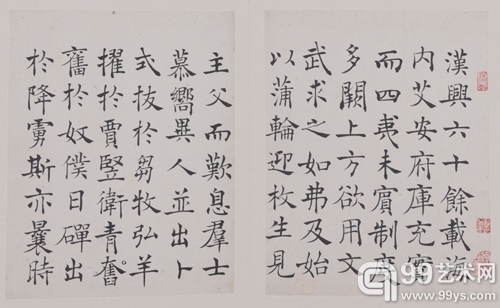 漢興六十餘載海
内艾安府庫充實
而四夷未賓制度
多闕上方欲用文
武求之如弗及始
以蒲輪迎枚生見
主父而歎息羣士
慕嚮異人並出卜
式拔於芻牧弘羊
擢於賈豎衛青奮
舊於奴僕日磾出
於降虜斯亦曩時
99艺术网
www.99ys.com